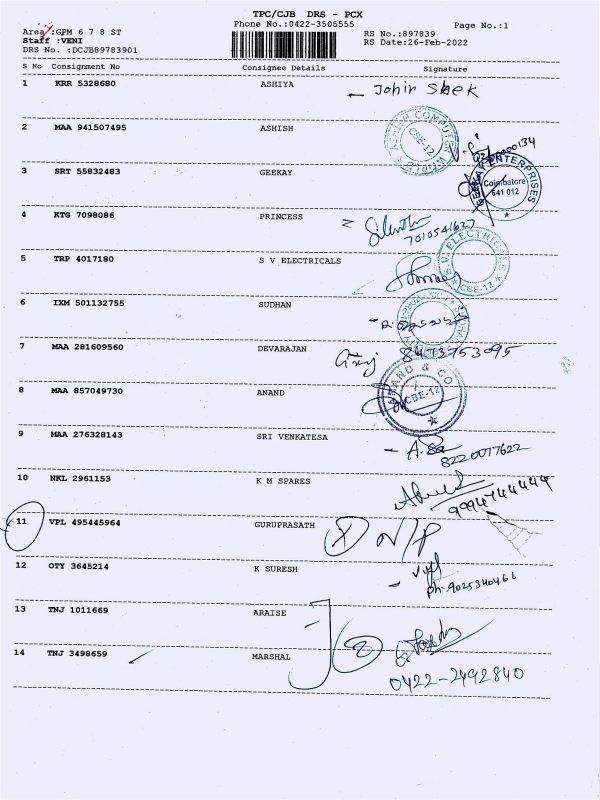 TPC/CJB DRS - PCX
Phone No.:0422-3505555 Page No.:1
Area :GPM 6 7 8 ST RS No.:897839
Staff :VENI RS Date:26-Feb-2022
DRS No. :DCJB89783901
S No Consignment No Consignee Details Signature
1 KRR 5328680 ASHIYA Johir Shek
2 MAA 941507495 ASHISH
CBE-12
3 SRT 55832483 GEEKAY
ENTERPRISES
Coimbatore
641 012
4 KTG 7098086 PRINCESS
7010541627
5 TRP 4017180 S V ELECTRICALS
S.V. ELECTRICALS
CBE-12
6 IXM 501132755 SUDHAN
7 MAA 281609560 DEVARAJAN
8473753095
8 MAA 857049730 ANAND
ANAND & CO
CBE-12
9 MAA 276328143 SRI VENKATESA
8220077622
10 NKL 2961153 K M SPARES
9994744444
11 VPL 495445964 GURUPRASATH N/P
12 OTY 3645214 K SURESH
Ph:9025340466
13 TNJ 1011669 ARAISE
14 TNJ 3498659 MARSHAL
0422-2492840